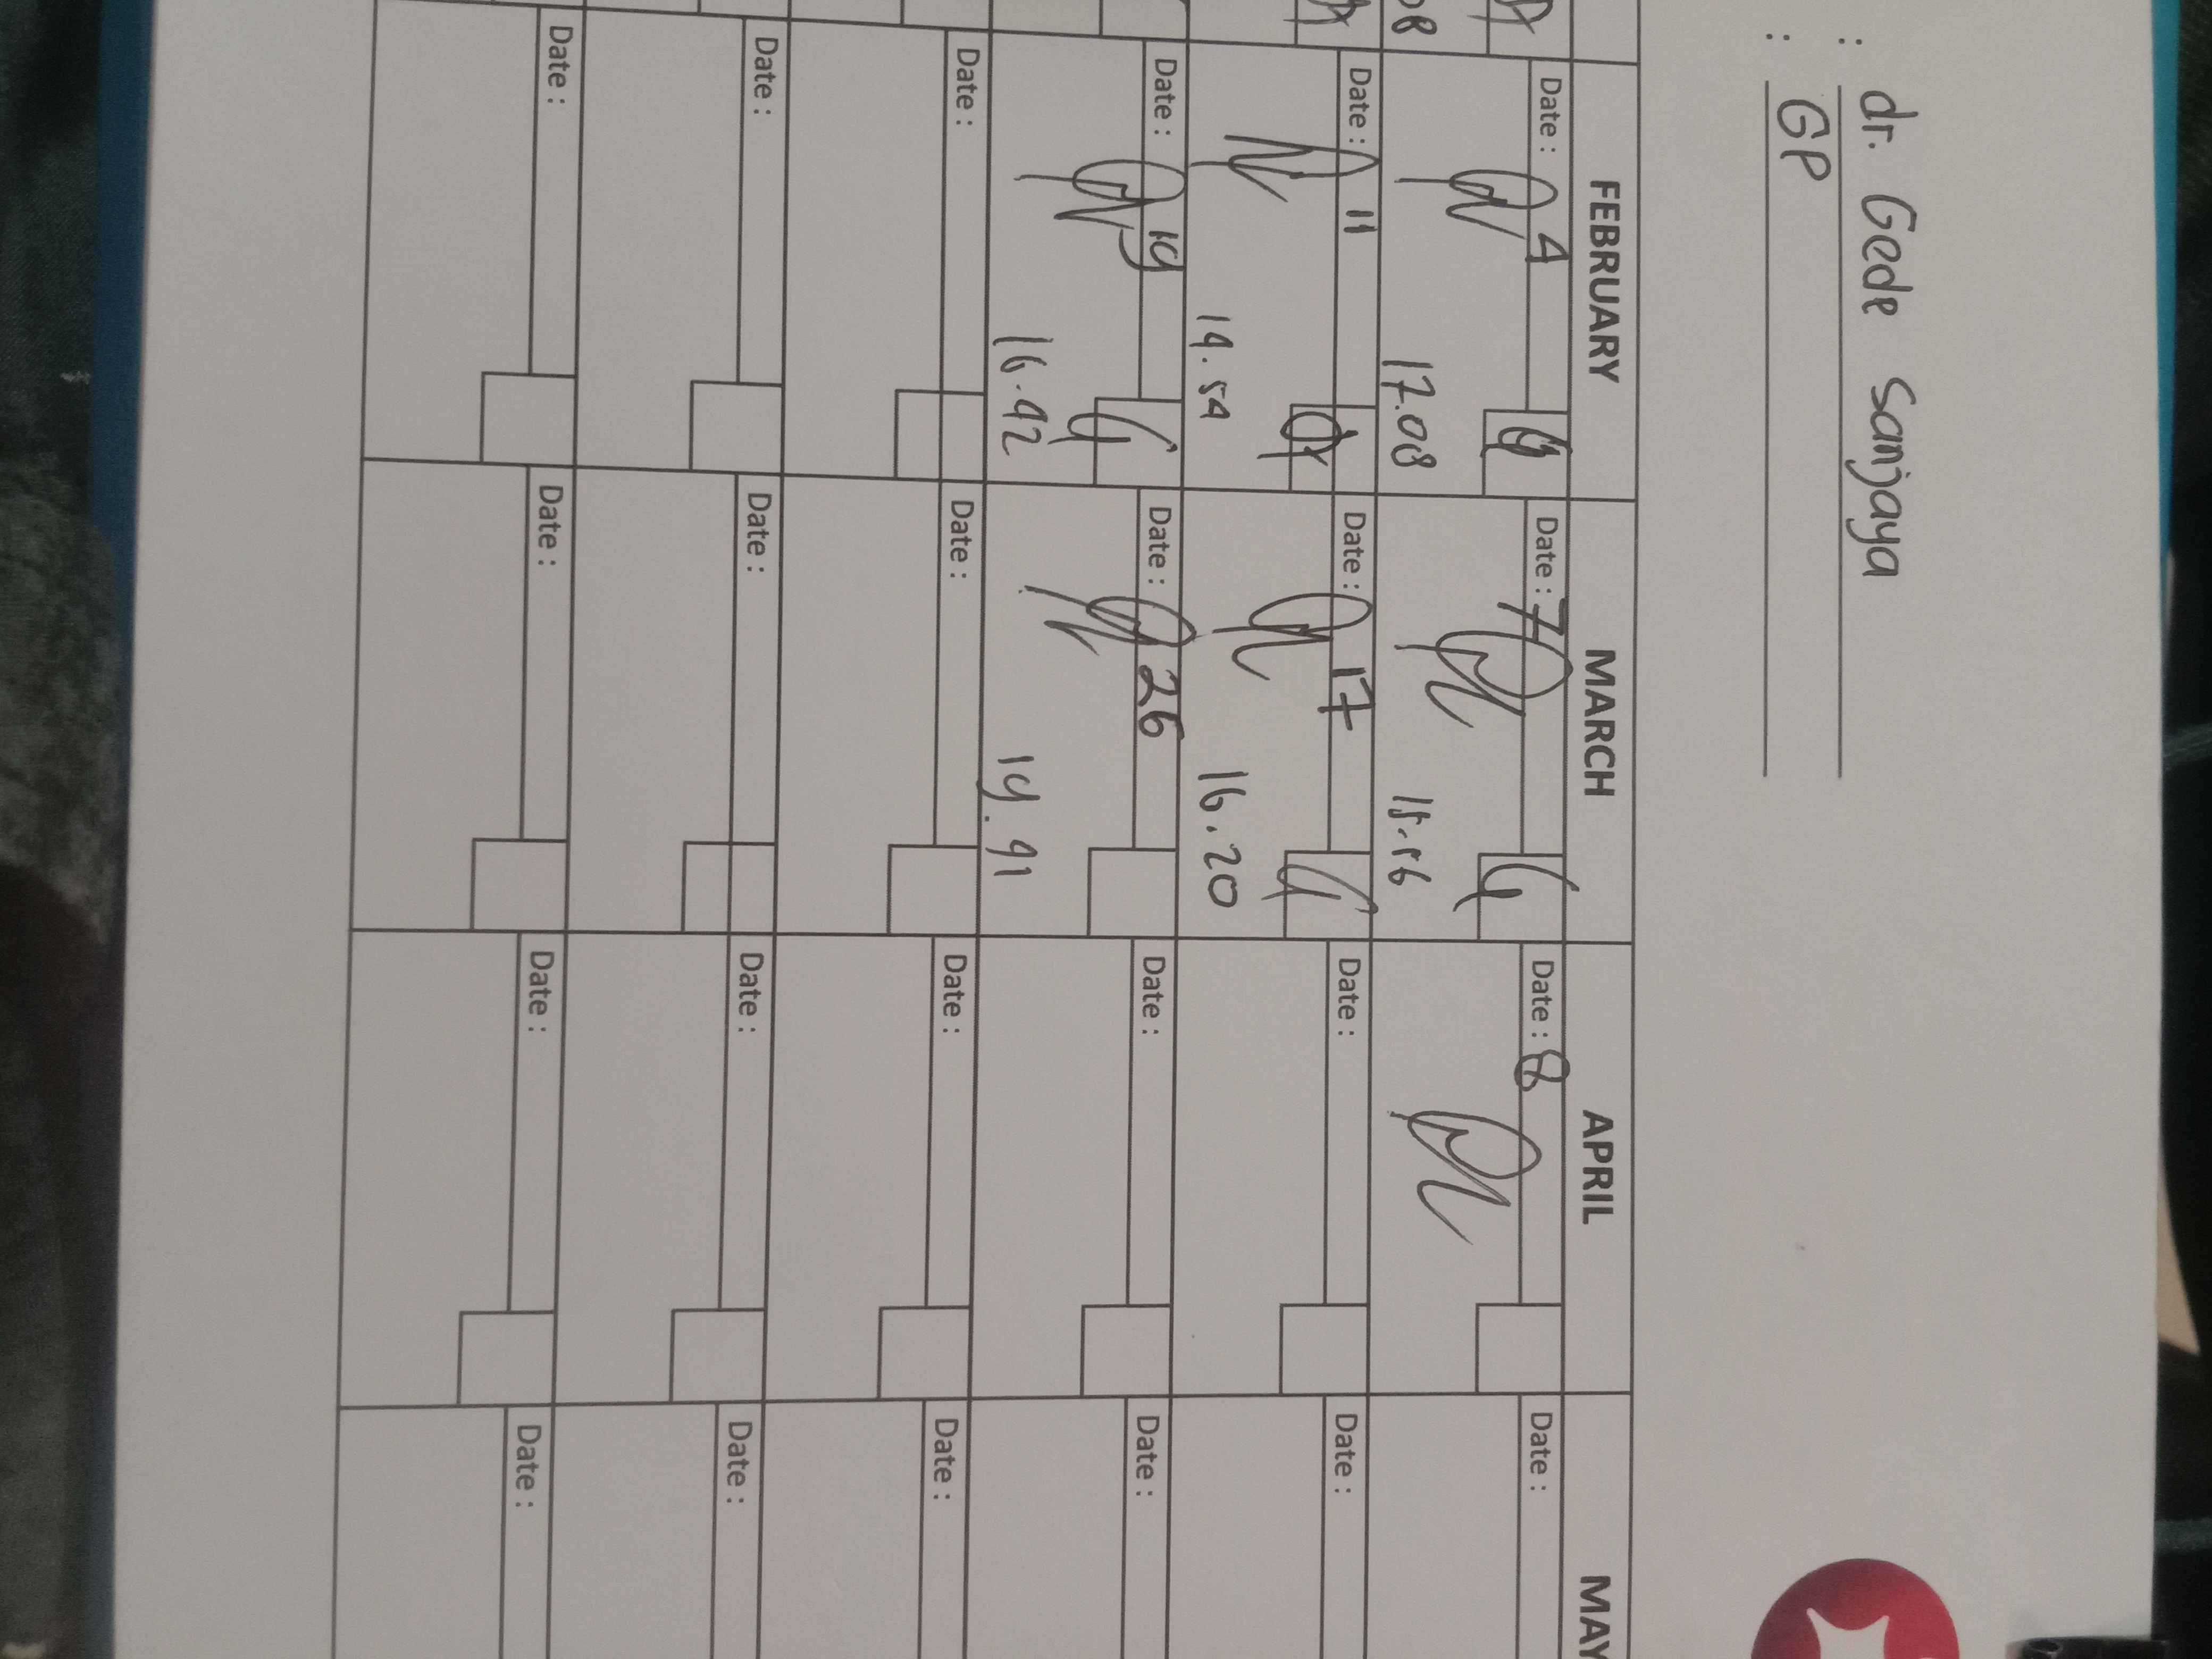 : dr. Gede Sanjaya
: GP
FEBRUARY MARCH APRIL MAY
Date : 4 Date : 7 Date : 8 Date :
08 17.08
Date : 11 Date : 17 Date : Date :
14.54 16.20
Date : 19 Date : 26 Date : Date :
16.42 19.41
Date : Date : Date : Date :
Date : Date : Date : Date :
Date : Date : Date : Date :